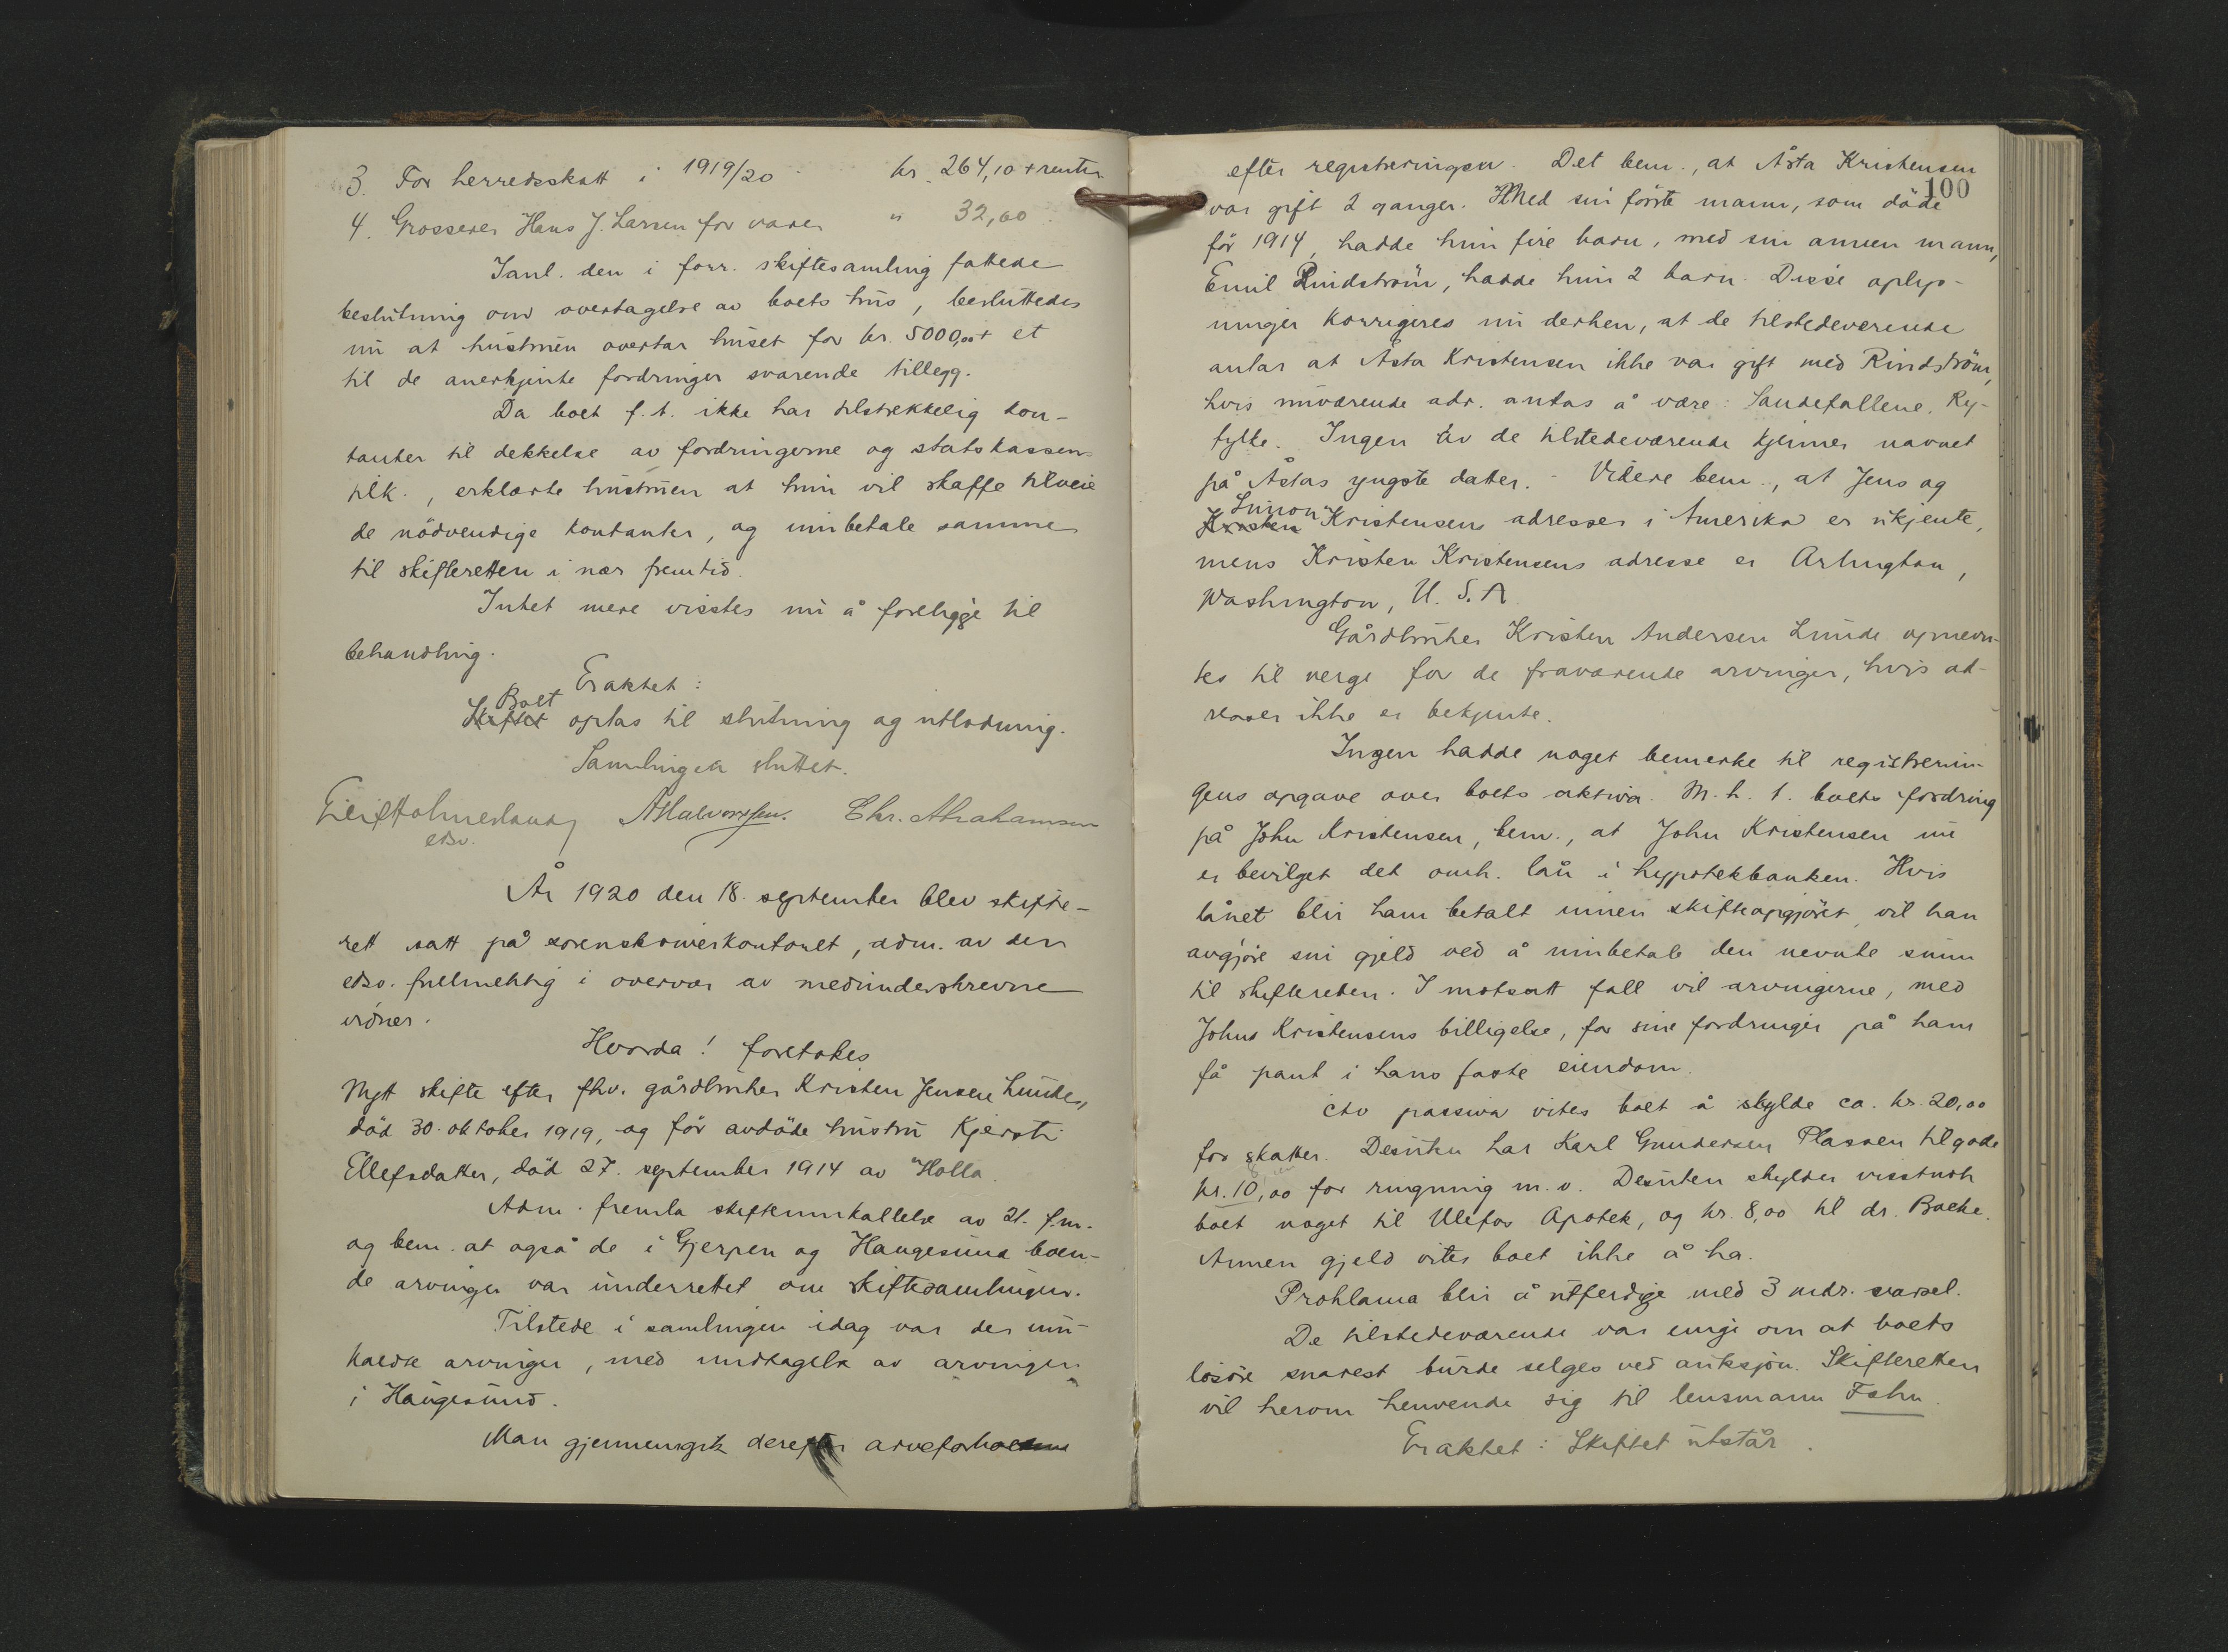 3. For herredsskatt i 1919/20 kr. 264,10 + renter
4. Grosserer Hans J. Larsen for varer " 32,60.
Ianl. den i forr. skiftesamling fattede
beslutning om overtagelse av boets hus, besluttedes
nu at hustruen overtar huset for kr. 5000,00 + et
til de anerkjente fordringer svarende tillegg.
Da boet f.t. ikke har tilstrekkelig kon-
tanter til dekkelse av fordringerne og statskassens
tilk., erklærte hustruen at hun vil skaffe tilveie
de nödvendige kontanter, og innbetale samme
til skifteretten i nær fremtid.
Intet mere visstes nu å foreligge til
behandling.
Eraktet:
Boet
Skiftet optas til slutning og utlodning.
Samlingen sluttet.
Leif Holmesland A Halvorsen. Chr. Abrahamsen
edsv.
År 1920 den 18. september blev skifte-
rett satt på sorenskriverkontoret, adm. av den
edsv. fullmektig i overvær av medunderskrevne
vidner.
Hvorda! foretokes
Nytt skifte efter fhv. gårdbruker Kristen Jensen Lunde,
död 30. oktober 1919, og för avdöde hustru Kjersti
Ellefsdatter, död 27. september 1914 av Holla.
Adm. fremla skifteinnkallelse av 21. f.m.
og bem. at også de i Gjerpen og Haugesund boen-
de arvinger var underrettet om skiftesamlingen.
Tilstede i samlingen idag var der inn-
kaldte arvinger, med undtagelse av arvingen
i Haugesund.
Man gjennemgik derefter arveforholdene
100
efter registreringen. Det bem., at Åsta Kristensen
var gift 2 ganger. Med sin förste mann, som döde
för 1914, hadde hun fire barn, med sin annen mann,
Emil Rindström, hadde hun 2 barn. Disse oplys-
ninger korrigeres nu derhen, at de tilstedeværende
antar at Åsta Kristensen ikke var gift med Rindström,
hvis nuværende adr. antas å være: Sandefallene, Ry-
fylke. Ingen av de tilstedeværende kjenner navnet
på Åstas yngste datter. - Videre bem., at Jens og
Simon
Kristen Kristensens adresser i Amerika er ukjente,
mens Kristen Kristensens adresse er Arlington,
Washington, U. S. A.
Gårdbruker Kristen Andersen Lunde opnevn-
tes til verge for de fraværende arvinger, hvis ad-
resser ikke er bekjente.
Ingen hadde noget bemerke til registrerin-
gens opgave over boets aktiva. M. h. t. boets fordring
på John Kristensen, bem., at John Kristensen nu
er bevilget det omh. lån i hypotekbanken. Hvis
lånet blir ham betalt innen skifteopgjöret, vil han
avgjöre sin gjeld ved å innbetale den nevnte sum
til skifteretten. I motsatt fall vil arvingerne, med
Johns Kristensens billigelse, for sine fordringer på ham
få pant i hans faste eiendom.
Av passiva vites boet å skylde ca. kr. 20,00
for skatter. Desuten har Karl Gundersen Plassen tilgode
kr. 10,00 for ringning m. v. Desuten skylder visstnok
boet noget til Ulefos Apotek, og kr. 8,00 til dr. Backe.
Annen gjeld vites boet ikke å ha.
Proklama blir å utferdige med 3 mdr. varsel.
De tilstedeværende var enige om at boets
lösöre snarest burde selges ved auksjon. Skifteretten
vil herom henvende sig til lensmann Fehn.
Eraktet: Skiftet utstår.